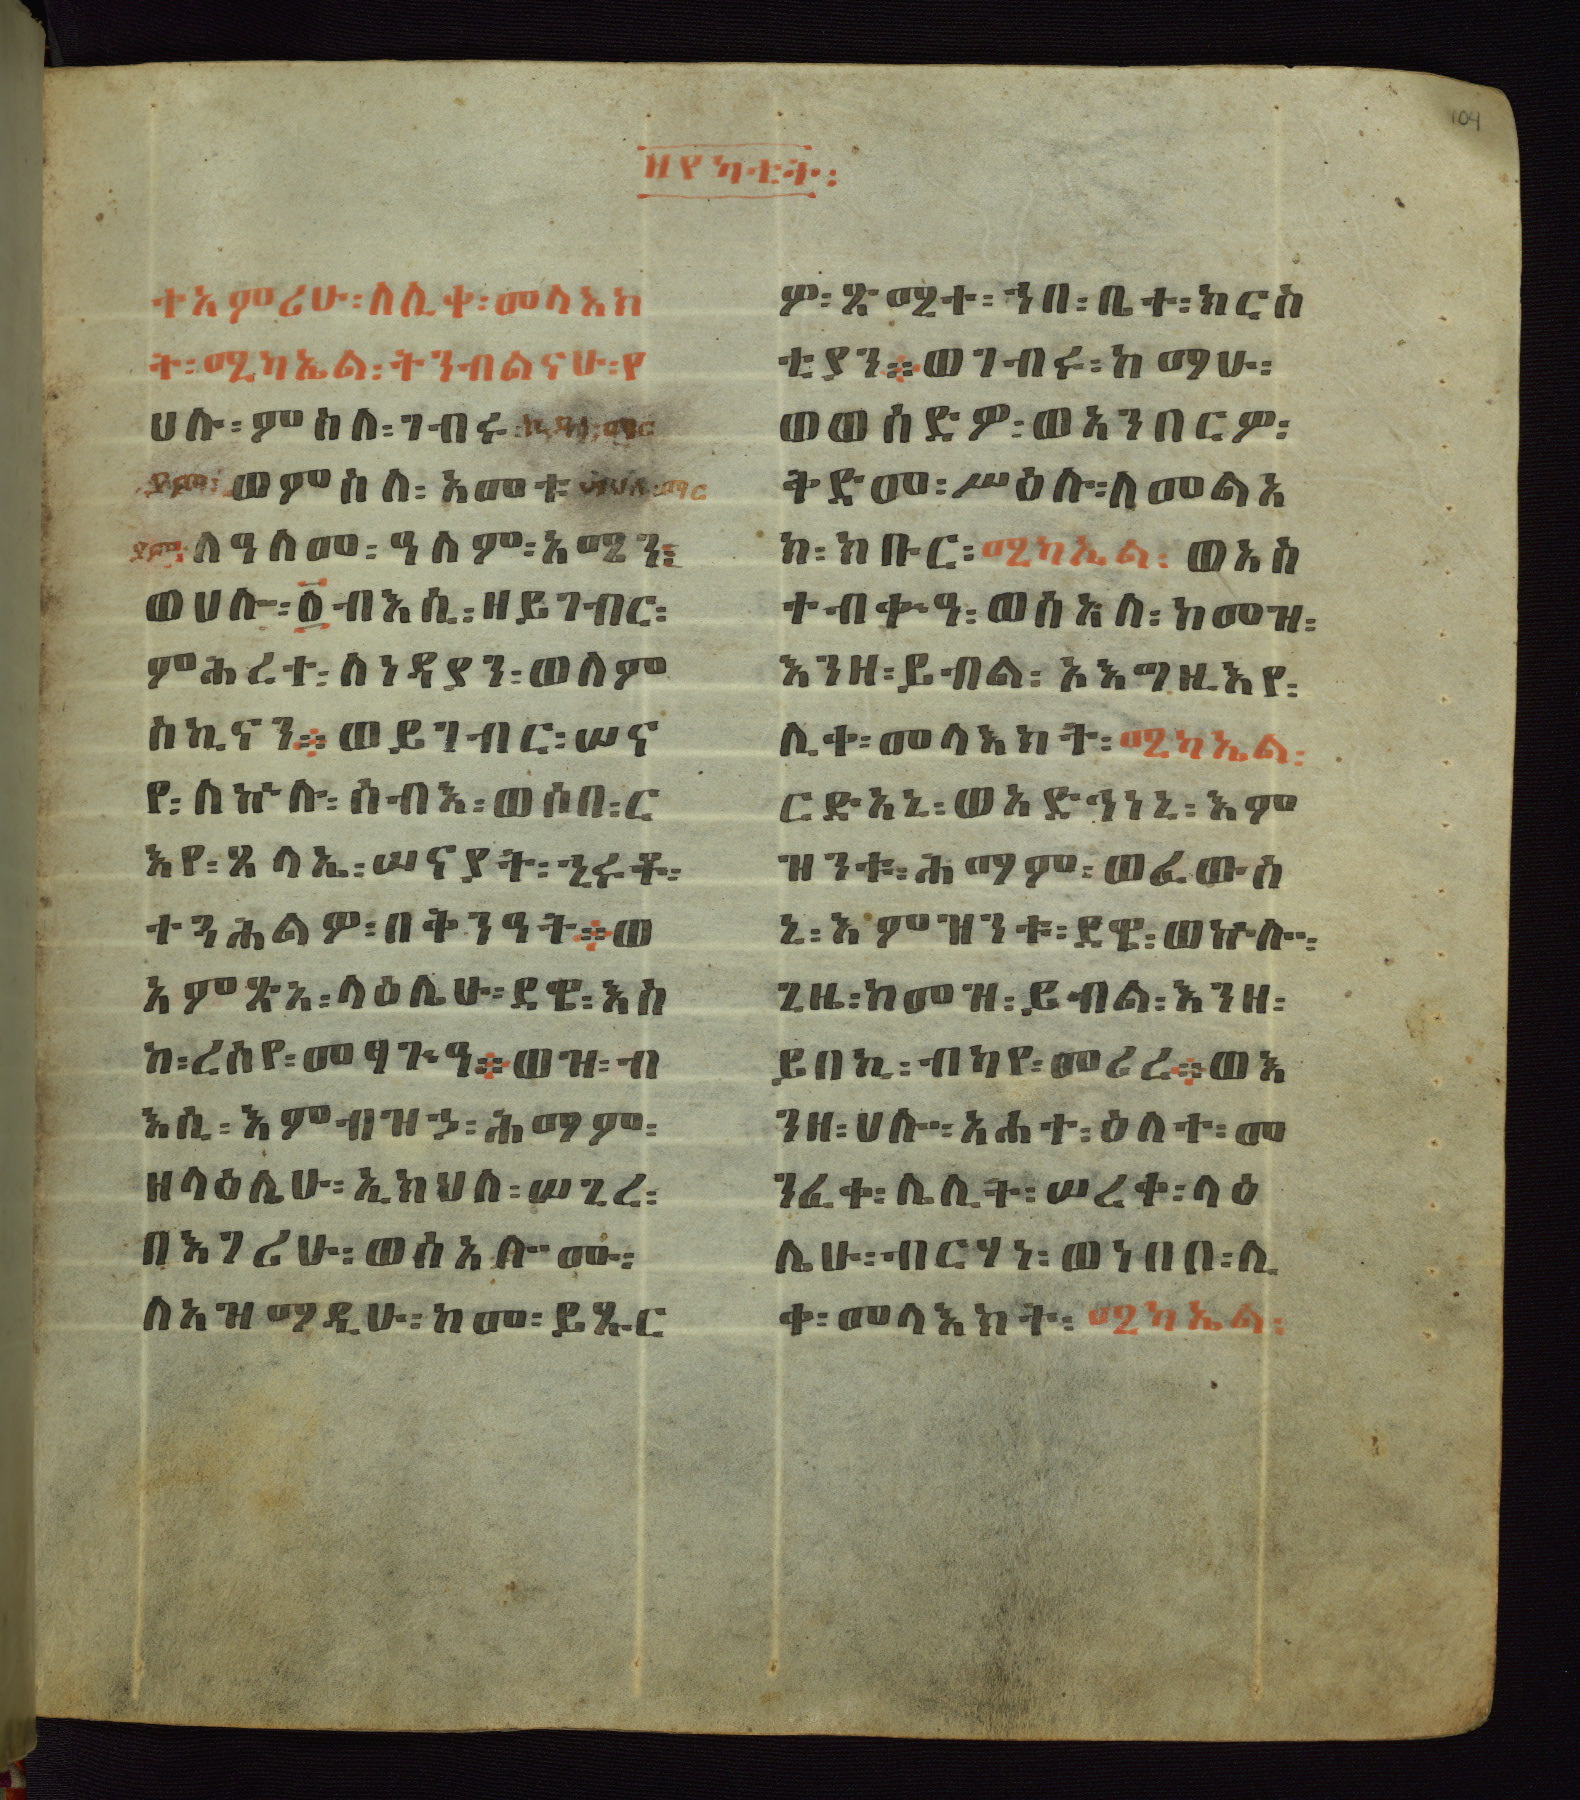 104
ዘየካቲት፡
ተአምሪሁ፡ለሊቀ፡መላእክ
ት፡ሚካኤል፡ትንብልናሁ፡የ
ሀሉ፡ምስለ፡ገብሩ፡
ወምስለ፡አመቱ
ለዓለመ፡ዓለም፡አሜን፡
ወሀሎ፡፩ብእሲ፡ዘይገብር፡
ምሕረተ፡ለነዳያን፡ወለም
ስኪናን፨ወይገብር፡ሠና
የ፡ለኵሉ፡ሰብእ፡ወሶበ፡ር
እየ፡ጸላኤ፡ሠናያት፡ኂሩቶ፡
ተኃሕልዎ፡በቅንዓት፨ወ
አምጽአ፡ላዕሌሁ፡ደዌ፡እስ
ከ፡ረሰየ፡መፃጕዓ፨ወዝ፡ብ
እሲ፡እምብዝኃ፡ሕማም፡
ዘላዕሌሁ፡ኢክህለ፡ሠጊረ፡
በእገሪሁ፡ወሰአሎሙ፡
ለአዝማዲሁ፡ከመ፡ይጹር
ዎ፡ጽሚተ፡ኀበ፡ቤተ፡ክርስ
ቲያን፨ወገብሩ፡ከማሁ፡
ወወሰድዎ፡ወአንበርዎ፡
ቅድመ፡ሥዕሉ፡ለመልአ
ክ፡ክቡር፡ሚካኤል፡ወአስ
ተብቍዓ፡ወሰአለ፡ከመዝ፡
እንዘ፡ይብል፡ኦእግዚእየ፡
ሊቀ፡መላእክት፡ሚካኤል፡
ርድአኒ፡ወአድኅነኒ፡እም
ዝንቱ፡ሕማም፡ወፈውስ
ኒ፡እምዝንቱ፡ደዌ፡ወኵሎ፡
ጊዜ፡ከመዝ፡ይብል፡እንዘ፡
ይበኪ፡ብካየ፡መሪረ፨ወእ
ንዘ፡ሀሎ፡አሐተ፡ዕለተ፡መ
ንፈቀ፡ሌሊት፡ሠረቀ፡ላዕ
ሌሁ፡ብርሃነ፡ወነበበ፡ሊ
ቀ፡መላእክት፡ሚካኤል፡